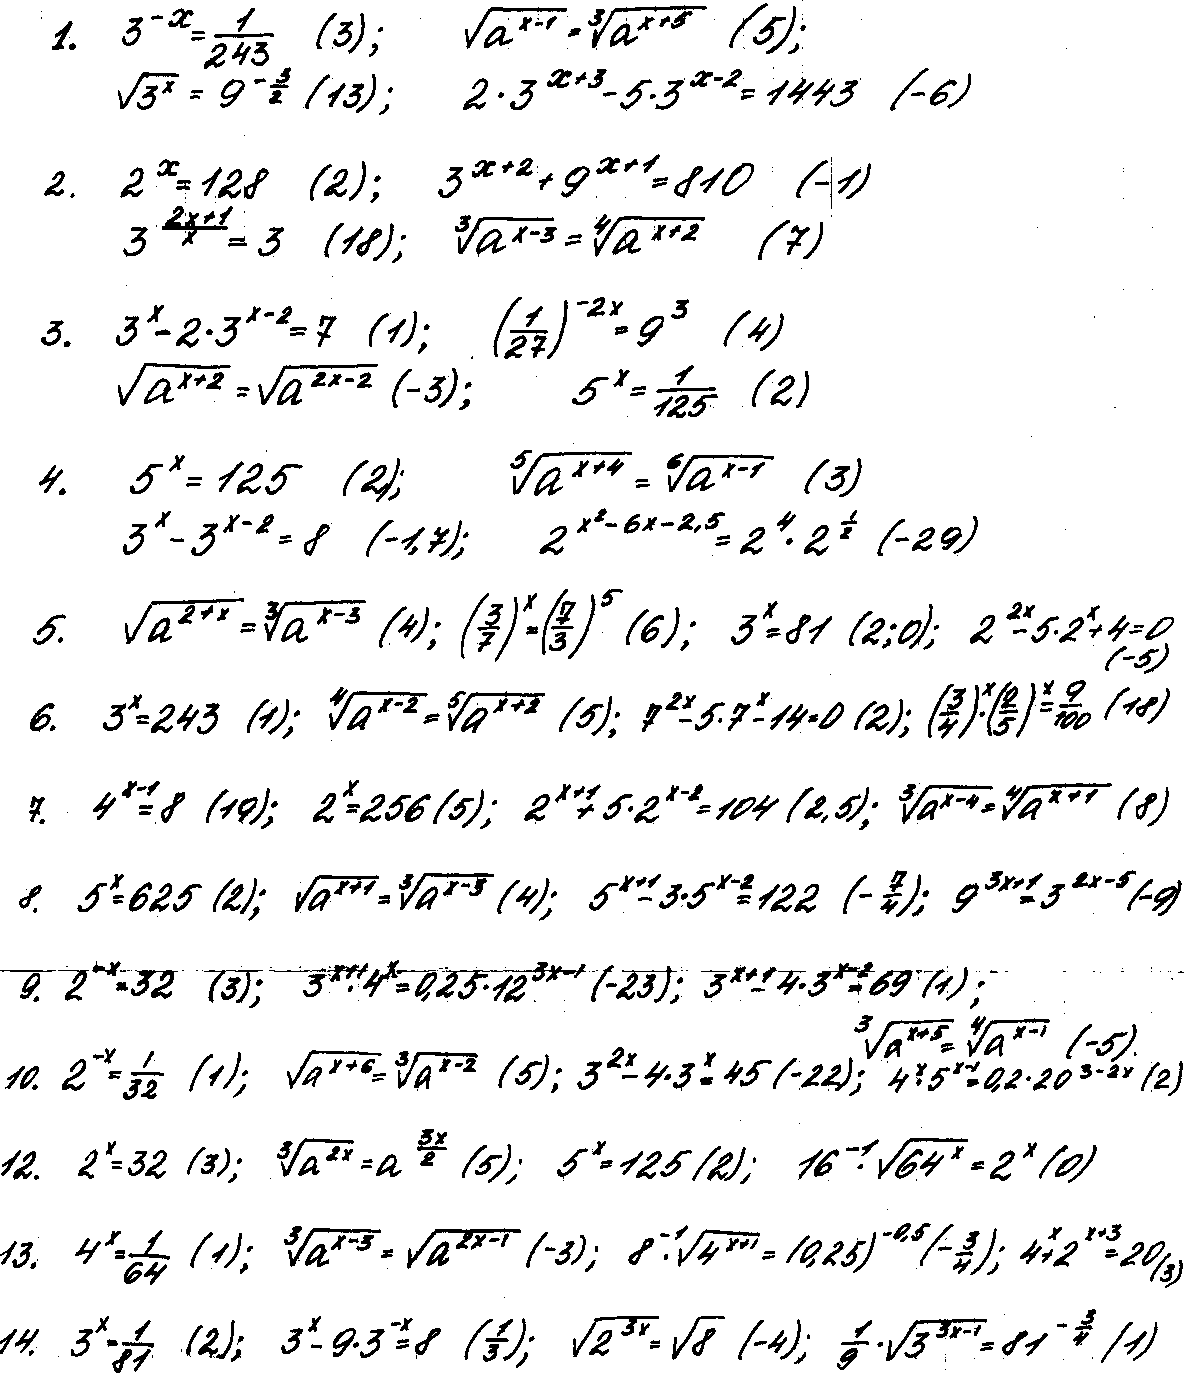 1. 3^{-x} = 1/243 (3); √(a^{x-1}) = ∛(a^{x+5}) (5);
√(3^x) = 9^{-3/2} (13); 2·3^{x+3} - 5·3^{x-2} = 1443 (-6)
2. 2^x = 128 (2); 3^{x+2} + 9^{x+1} = 810 (-1)
3^{(2x+1)/x} = 3 (18); ∛(a^{x-3}) = ∜(a^{x+2}) (7)
3. 3^x - 2·3^{x-2} = 7 (1); (1/27)^{-2x} = 9^3 (4)
√(a^{x+2}) = √(a^{2x-2}) (-3); 5^x = 1/125 (2)
4. 5^x = 125 (2); ⁵√(a^{x+4}) = ⁶√(a^{x-1}) (3)
3^x - 3^{x-2} = 8 (-1,7); 2^{x²-6x-2,5} = 2^4·2^{1/2} (-29)
5. √(a^{2+x}) = ∛(a^{x-3}) (4); (3/7)^x = (7/3)^5 (6); 3^x = 81 (2;0); 2^{2x} - 5·2^x + 4 = 0
(-5)
6. 3^x = 243 (1); ∜(a^{x-2}) = ⁵√(a^{x+2}) (5); 7^{2x} - 5·7^x - 14 = 0 (2); (3/4)^x·(2/5)^x = 9/100 (18)
7. 4^{x-1} = 8 (19); 2^x = 256 (5); 2^{x+1} + 5·2^{x-2} = 104 (2,5); ∛(a^{x-4}) = ∜(a^{x+1}) (8)
8. 5^x = 625 (2); √(a^{x+1}) = ∛(a^{x-3}) (4); 5^{x+1} - 3·5^{x-2} = 122 (-7/4); 9^{3x+1} = 3^{2x-5} (-9)
9. 2^{-x} = 32 (3); 3^{x+1}·4^x = 0,25·12^{3x-1} (-23); 3^{x+1} - 4·3^{x-2} = 69 (1);
∛(a^{x+5}) = ∜(a^{x-1}) (-5).
10. 2^{-x} = 1/32 (1); √(a^{x+6}) = ∛(a^{x-2}) (5); 3^{2x} - 4·3^x = 45 (-22); 4^x·5^{x-1} = 0,2·20^{3-2x} (2)
12. 2^x = 32 (3); ∛(a^{2x}) = a^{3x/2} (5); 5^x = 125 (2); 16^{-1}·√(64^x) = 2^x (0)
13. 4^x = 1/64 (1); ∛(a^{x-3}) = √(a^{2x-1}) (-3); 8^{-1}·√(4^{x+1}) = (0,25)^{-0,5} (-3/4); 4^x + 2^{x+3} = 20 (3)
14. 3^x = 1/81 (2); 3^x - 9·3^{-x} = 8 (1/3); √(2^{3x}) = √8 (-4); 1/9·√(3^{3x-1}) = 81^{-3/4} (1)